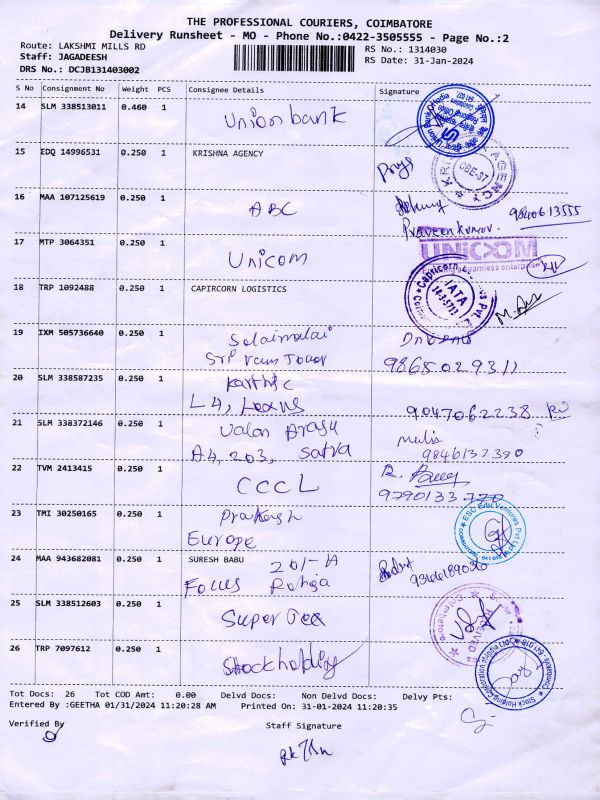 THE PROFESSIONAL COURIERS, COIMBATORE
Delivery Runsheet - MO - Phone No.:0422-3505555 - Page No.:2
Route: LAKSHMI MILLS RD
Staff: JAGADEESH
DRS No.: DCJB131403002
RS No.: 1314030
RS Date: 31-Jan-2024
S No Consignment No Weight PCS Consignee Details Signature
14 SLM 338513011 0.460 1 Union bank
15 EDQ 14996531 0.250 1 KRISHNA AGENCY
Priya
CBE-37
16 MAA 107125619 0.250 1 ABC
Praveen Kumar. 9840613555
17 MTP 3064351 0.250 1 Unicom
UNICOM
seamless enterprise
18 TRP 1092488 0.250 1 CAPIRCORN LOGISTICS
Capricorn
19 IXM 505736640 0.250 1 Selaimalai
Sri ram Tower
9865029311
20 SLM 338587235 0.250 1 Karthic
L4, Lexus
9047062238
21 SLM 338372146 0.250 1 Valan Arasu
A4, 203, Satva
9846137390
22 TVM 2413415 0.250 1 CCCL
R.
9790133770
23 TMI 30250165 0.250 1 Prakash
Europe
ESC Edu Ventures Pvt Ltd
24 MAA 943682081 0.250 1 SURESH BABU 201-A
Focus Raheja
9344189036
25 SLM 338512603 0.250 1 Super Tex
26 TRP 7097612 0.250 1 Stockholding
Tot Docs: 26 Tot COD Amt: 0.00 Delvd Docs: Non Delvd Docs: Delvy Pts:
Entered By :GEETHA 01/31/2024 11:20:28 AM Printed On: 31-01-2024 11:20:35
Verified By
Staff Signature